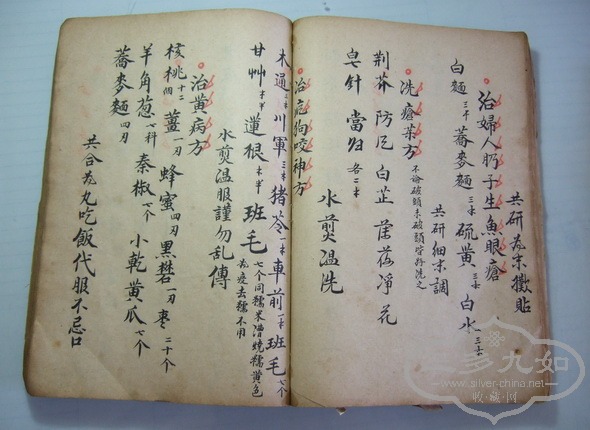 共研為末撒貼
治婦人奶子生魚眼瘡
白麵三个蕎麥麵三个硫黃三个白水三个
共研細末調
洗瘡藥方不論破頭未破頭皆能洗之
荆芥 防风 白芷 净花
皂针 當归各二个
水煎温洗
治疯狗咬神方
木通三个川軍三个猪苓一个車前一个班毛七个
甘艸蓮根班毛七个同糯米漕燒糯黄色為度去糯不用
水煎温服謹勿乱傳
治黄病方
核桃十二個薑一刃蜂蜜四刃黑礬一刃枣二十个
羊角葱一科秦椒七个小乾黄瓜七个
蕎麥麵四刃
共合為丸吃飯代服不忌口
多九如
www.silver-china.net
收藏网